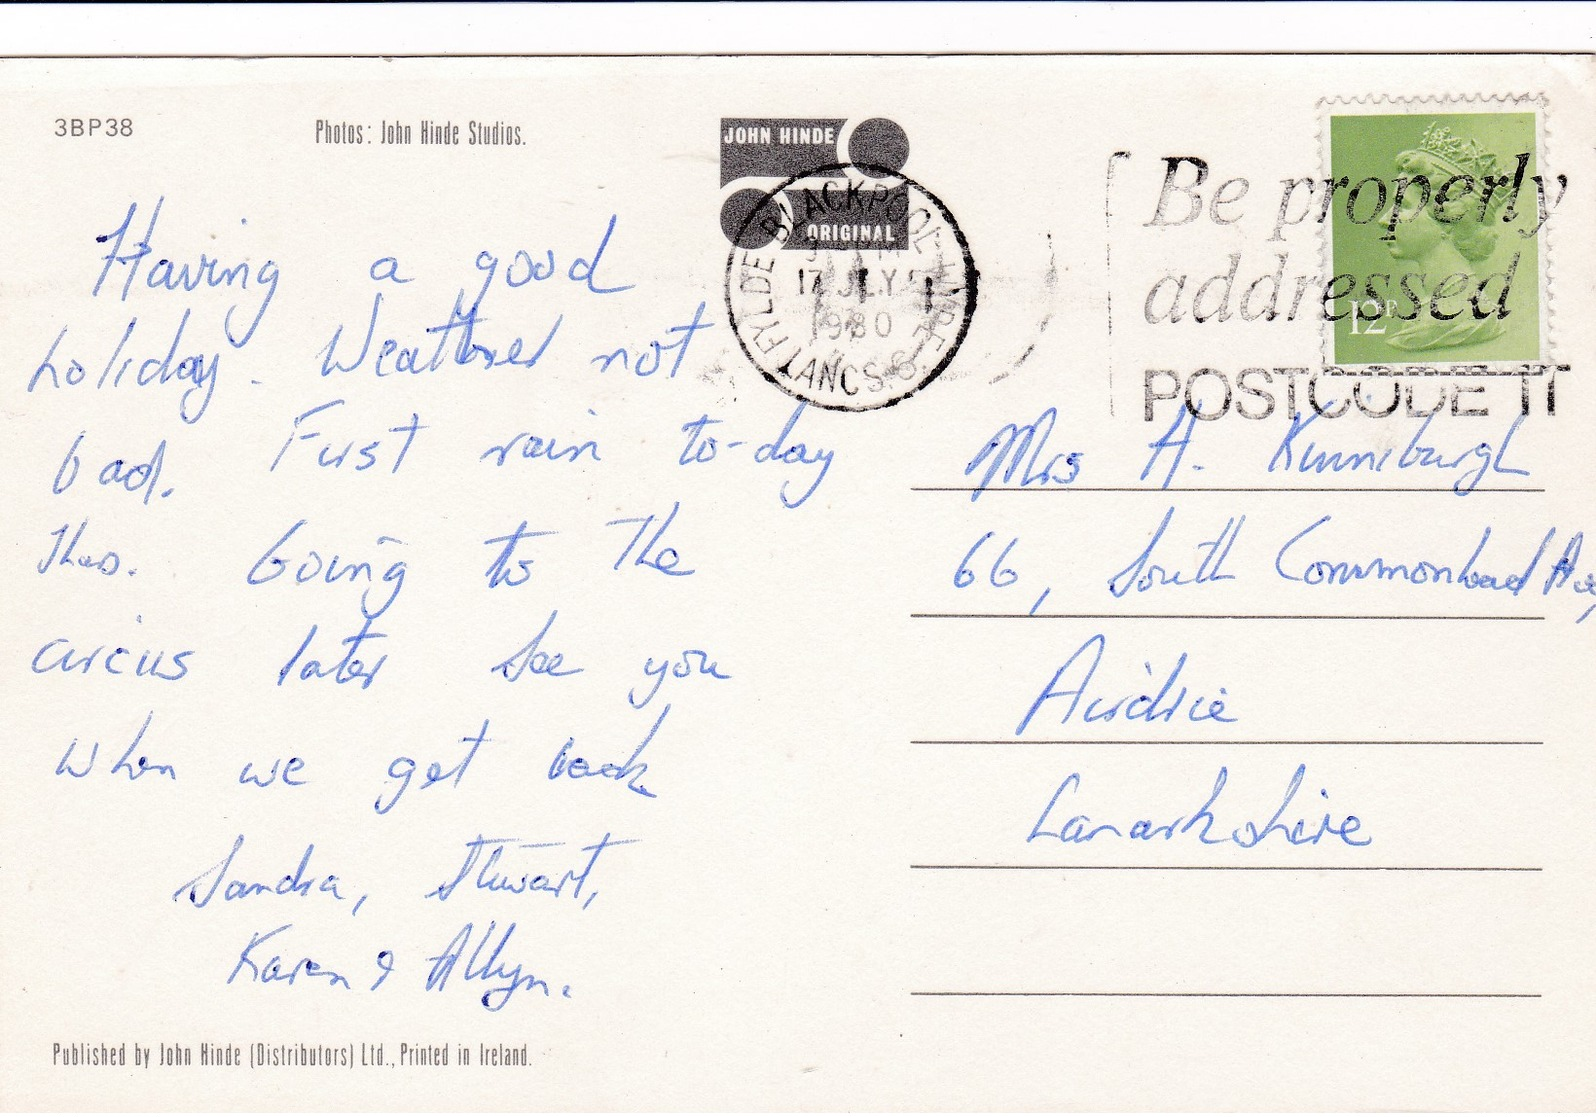 3BP38
Photos: John Hinde Studios.
JOHN HINDE
ORIGINAL
BLACKPOOL
FYLDE LANCS
17 JLY
1980
Be properly
addressed
POSTCODE IT
12P
Having a good
holiday. Weather not
bad. First rain to-day
Thurs. Going to the
circus later See you
when we get back
Sandra, Stewart,
Karen & Allyn.
Mrs A. Kinniburgh
66, South Commonhead Ave,
Airdrie
Lanarkshire
Published by John Hinde (Distributors) Ltd., Printed in Ireland.